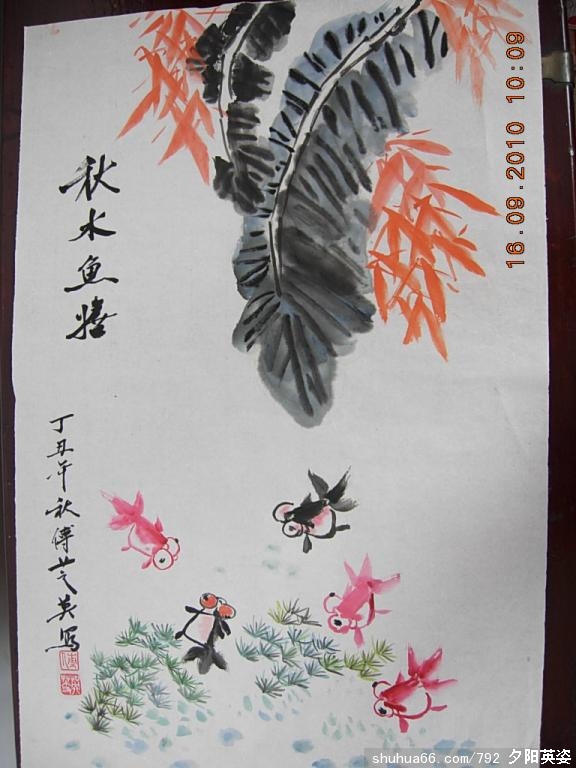 秋水鱼嬉
丁丑年秋傅芝英写
16.09.2010 10:09
shuhua66.com/792 夕阳英姿